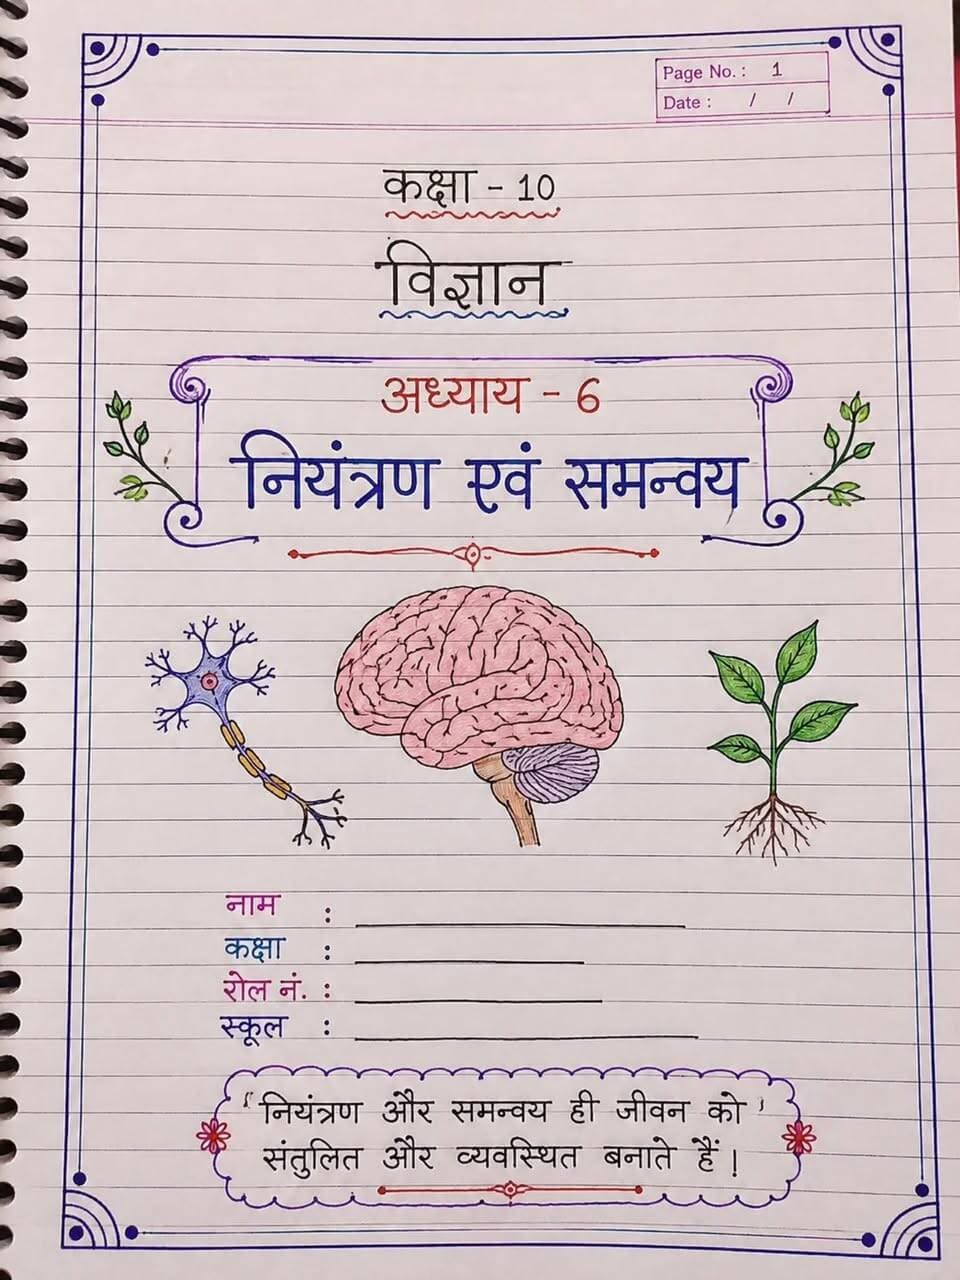 Page No. : 1
Date : / /
कक्षा - 10
विज्ञान
अध्याय - 6
नियंत्रण एवं समन्वय
नाम :
कक्षा :
रोल नं. :
स्कूल :
"नियंत्रण और समन्वय ही जीवन को
संतुलित और व्यवस्थित बनाते हैं!